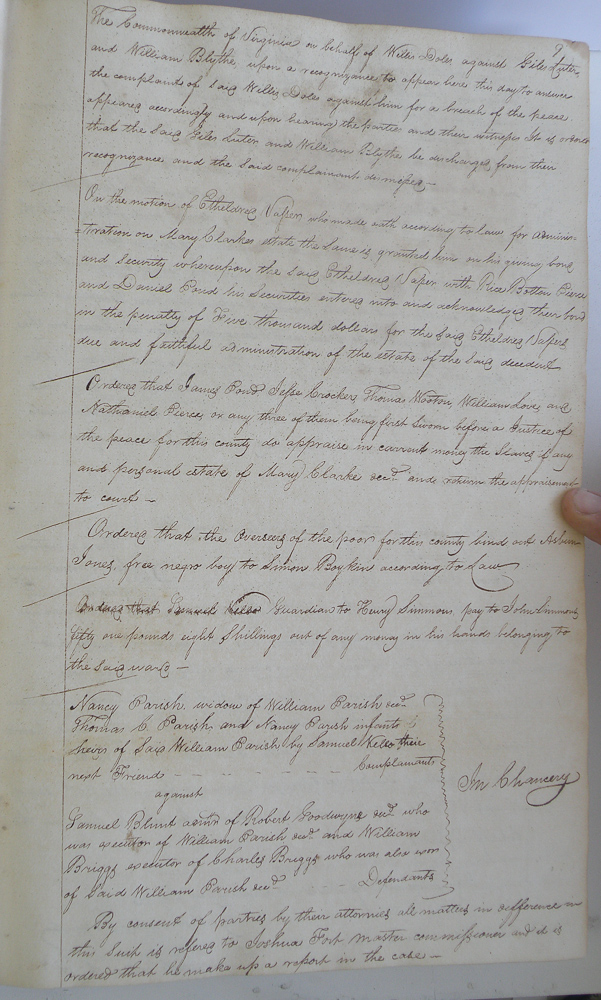 The Commonwealth of Virginia on behalf of Willis Doles against Giles Luter
and William Blythe upon a recognizance to appear here this day to answer
the complaint of said Willis Doles against him for a breach of the peace
appeared accordingly and upon hearing the parties and their witnesses It is ordered
that the said Giles Luter and William Blythe be discharged from their
recognizance and the said complainant dismissed —
On the motion of Etheldred Vasser who made oath according to law for adminis-
=tration on Mary Clarkes estate the same is granted him on his giving bond
and security whereupon the said Etheldred Vasser with Rice Batten Pierce
and Daniel Pond his Securities entered into and acknowledged their bond
in the penalty of Five thousand dollars for the said Etheldred Vassers
due and faithful administration of the estate of the said decedent
Ordered that James Pond Jesse Crocker Thomas Wooton William Love and
Nathaniel Pierce or any three of them being first sworn before a Justice of
the peace for this county do appraise in current money the Slaves if any
and personal estate of Mary Clarke decd. and return the appraisement
to court —
Ordered that the Overseers of the poor for this county bind out
Jones, free negro boy to Simon Boykin according to Law
Ordered that Samuel Kelso Guardian to Henry Simmons pay to John Simmons
fifty one pounds eight Shillings out of any money in his hands belonging to
the said ward —
Nancy Parish widow of William Parish decd.
Thomas C. Parish and Nancy Parish infants &
heirs of said William Parish by Samuel Kelso their
next Friend - - - - - Complainants
against
Samuel Blunt admr of Robert Goodwyn decd. who
was executor of William Parish decd. and William
Briggs executor of Charles Briggs who was also exor
of Said William Parish decd. - - - Defendants
In Chancery
By consent of parties by their attornies all matters in difference in
this Suit is refered to Joshua Fort master commissioner and it is
ordered that he make up a report in the case —